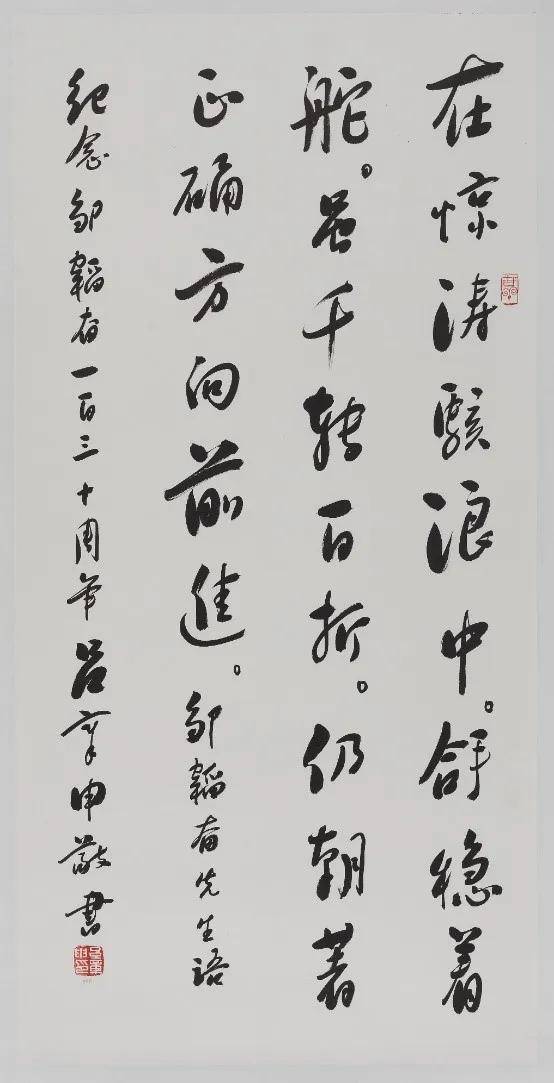 在惊涛駭浪中。拿稳着
舵。虽千转百折。仍朝著
正确方向前進。邹韜奋先生语
纪念邹韜奋一百三十周年吕章申敬书